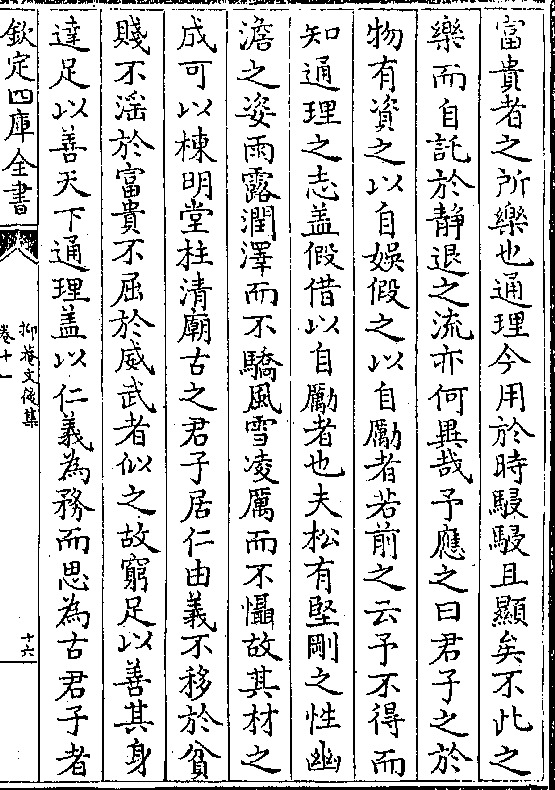 富貴者之所樂也通理今用於時駸駸且顯矣不此之
樂而自託於靜退之流亦何異哉予應之曰君子之於
物有資之以自娛假之以自勵者若前之云予不得而
知通理之志盖假借以自勵者也夫松有堅剛之性幽
澹之姿雨露潤澤而不驕風雪凌厲而不懾故其材之
成可以棟明堂柱清廟古之君子居仁由義不移於貧
賤不滛於富貴不屈於威武者似之故窮足以善其身
達足以善天下通理盖以仁義為務而思為古君子者
欽定四庫全書
抑菴文後集
卷十一
十六